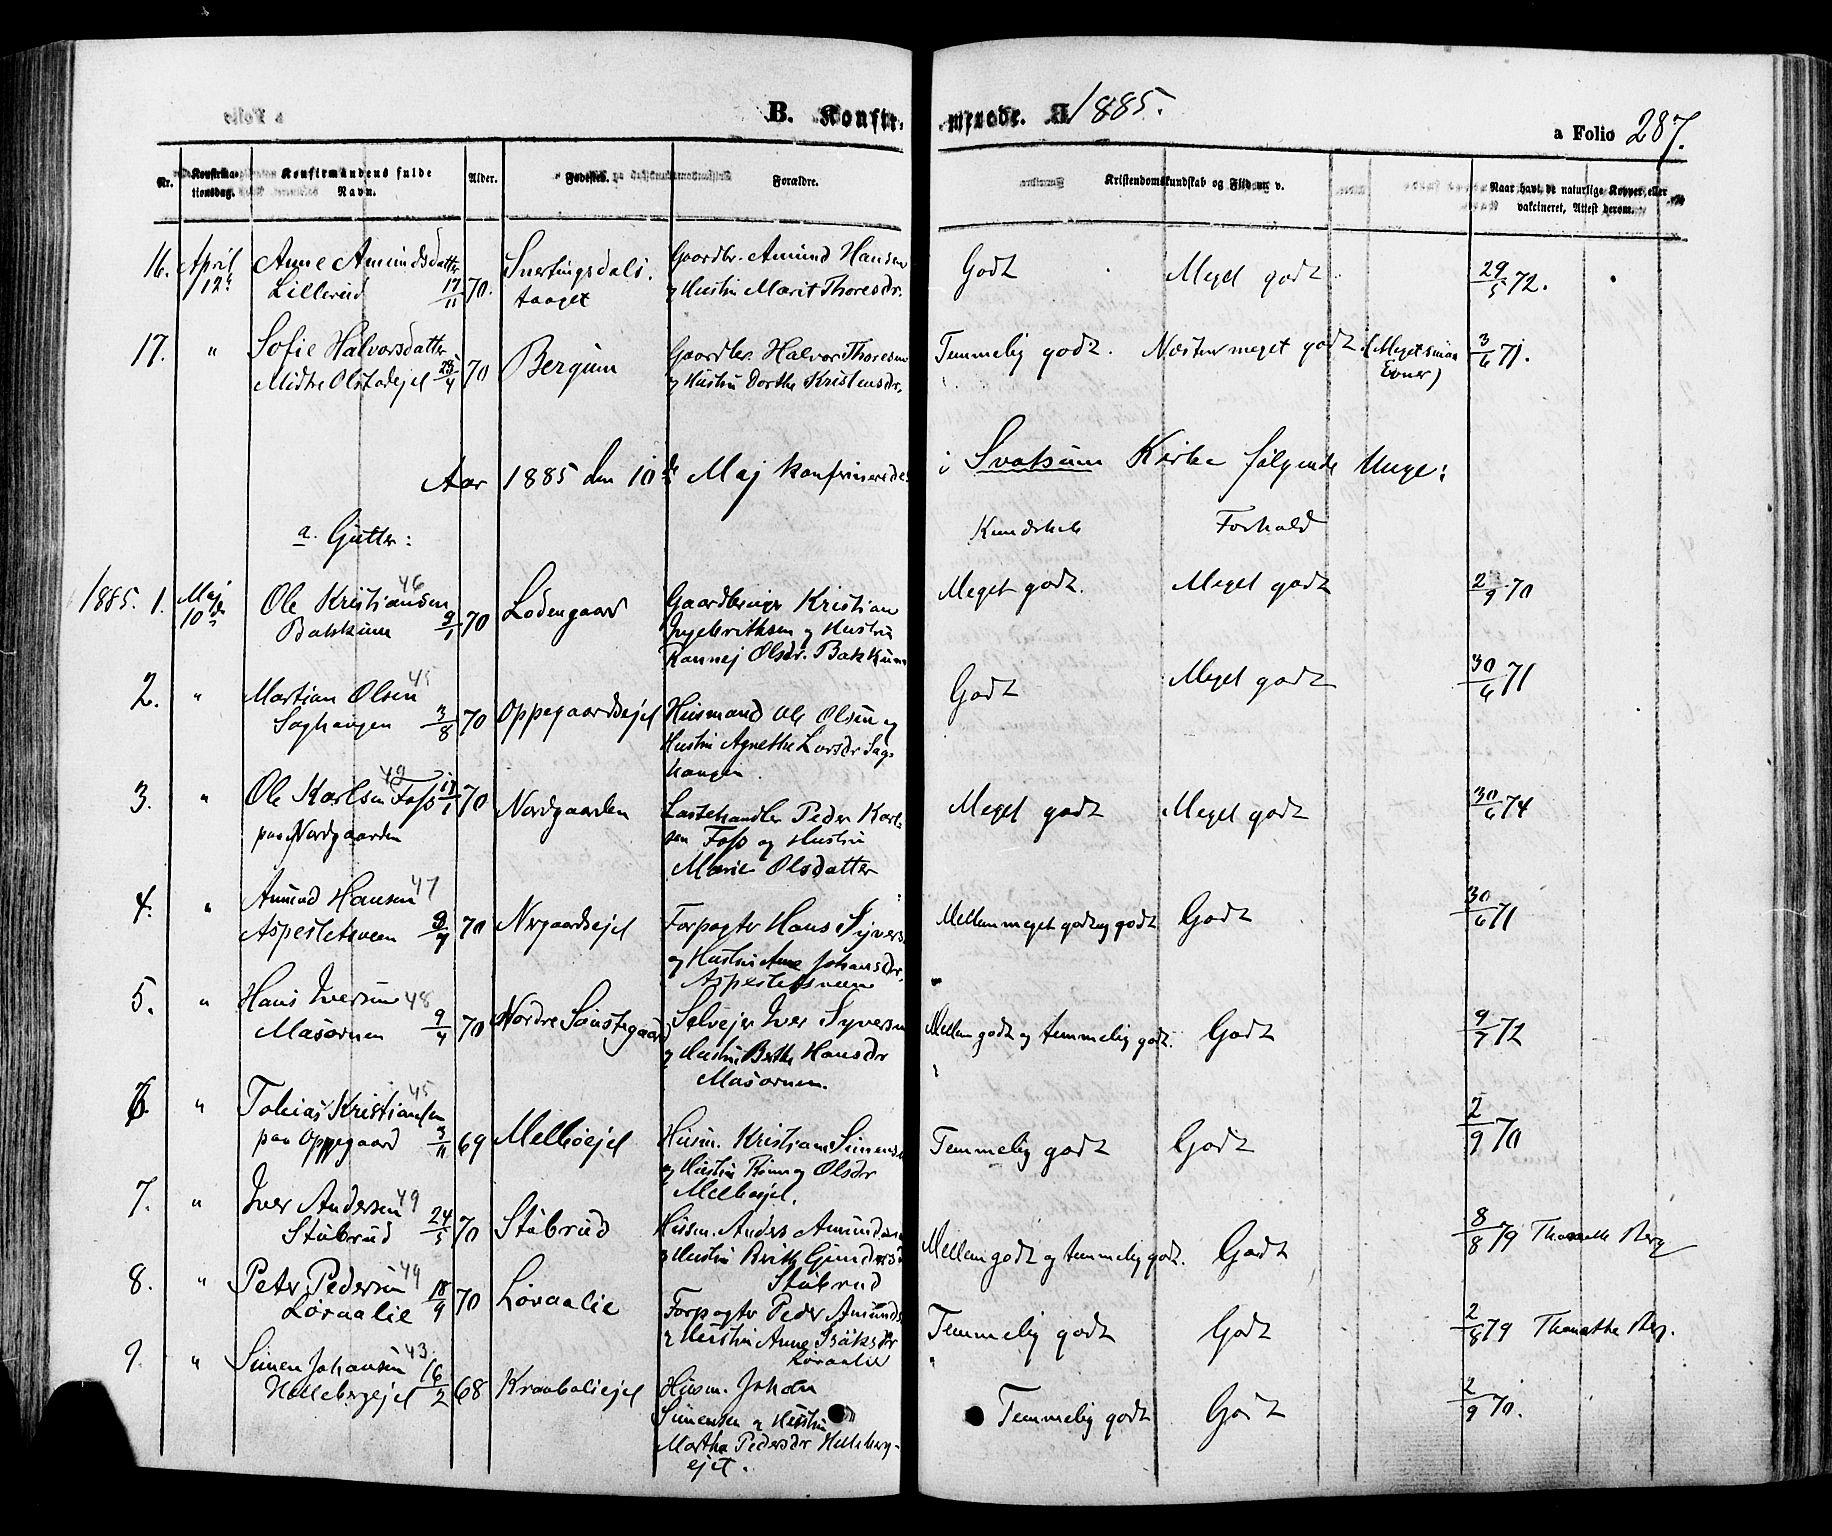 B. Konfir- merede. 1885.
a Folio 287.
Nr. Konfirmationsdag. Konfirmandens fulde Navn. Alder. Fødested. Forældre. Kristendomskundskab og Flid m. v. Naar havt de naturlige Kopper eller vakcineret, Attest derom.
16. April 12te Anne Amundsdatter Lillerud 17/11 70. Snertingsdals. taaget Gaardbr. Amund Hansen og Hustru Marit Thoresdr. Godt Meget godt. 29/5 72.
17. " Sofie Halvorsdatter Midtre Olstadejet 25/4 70 Bergum Gaardbr. Halvor Thoresen og Hustru Dorthe Kristensdr. Temmelig godt. Næsten meget godt (Meget smaa Evner) 3/6 71.
Aar 1885 den 10de Maj konfirmeredes i Svatsum Kirke følgende Unge:
a. Gutter: Kundskab Forhold
1885. 1. Maj 10de Ole Kristiansen 46 Bakkum 9/1 70 Lodengaard Gaardbruger Kristian Ingebrigtsen og Hustru Rannej Olsdr. Bakkum Meget godt. Meget godt 2/9 70
2. " Martian Olsen 45 Saghaugen 3/8 70 Oppegaardsejet Husmand Ole Olsen og Hustru Agnethe Larsdr Saghaugen. Godt Meget godt 30/6 71
3. " Ole Karlsen Foss 49 17/1 70 paa Nordgaarden Nordgaarden Lastehandler Peder Karlsen Foss og Hustru Marie Olsdatter Meget godt Meget godt 30/6 74
4. " Amund Hansen 47 Aspesletsveen 9/9 70 Nergaardsejet Forpagter Hans Syvers. og Hustru Anne Johansdr. Aspesletsveen Mellem meget godt og godt Godt 30/6 71
5. " Hans Iversen 48 Masørnen 9/4 70 Nordre Sønstegaard Selvejer Iver Syversen og Hustru Berthe Hansdr Masørnen. Mellem godt og temmelig godt. Godt 9/7 72
6. " Tobias Kristiansen 45 paa Oppegaard 3/11 69 Melbøejet Husm. Kristian Simensen og Hustru Rønnog Olsdr Melbøejet. Temmelig godt Godt 2/9 70
7. " Iver Andersen 49 Stubrud 24/5 70 Stubrud Husm. Anders Amundsen og Hustru Berthe Gundersd Stubrud Mellem godt og temmelig godt. Godt 8/8 79 Thonette Berg
8. " Peter Pedersen 49 Løraalie 18/9 70 Løraalie Forpagter Peder Amunds. og Hustru Anne Isaksdr Løraalie Temmelig godt Godt 2/8 79 Thonethe Berg.
9. " Simen Johansen 43 Hellebergejet 16/2 68 Kraabølejet Husm. Johan Simensen og Hustru Marthe Pedersdr Hellebergejet. Temmelig godt Godt 2/9 70.